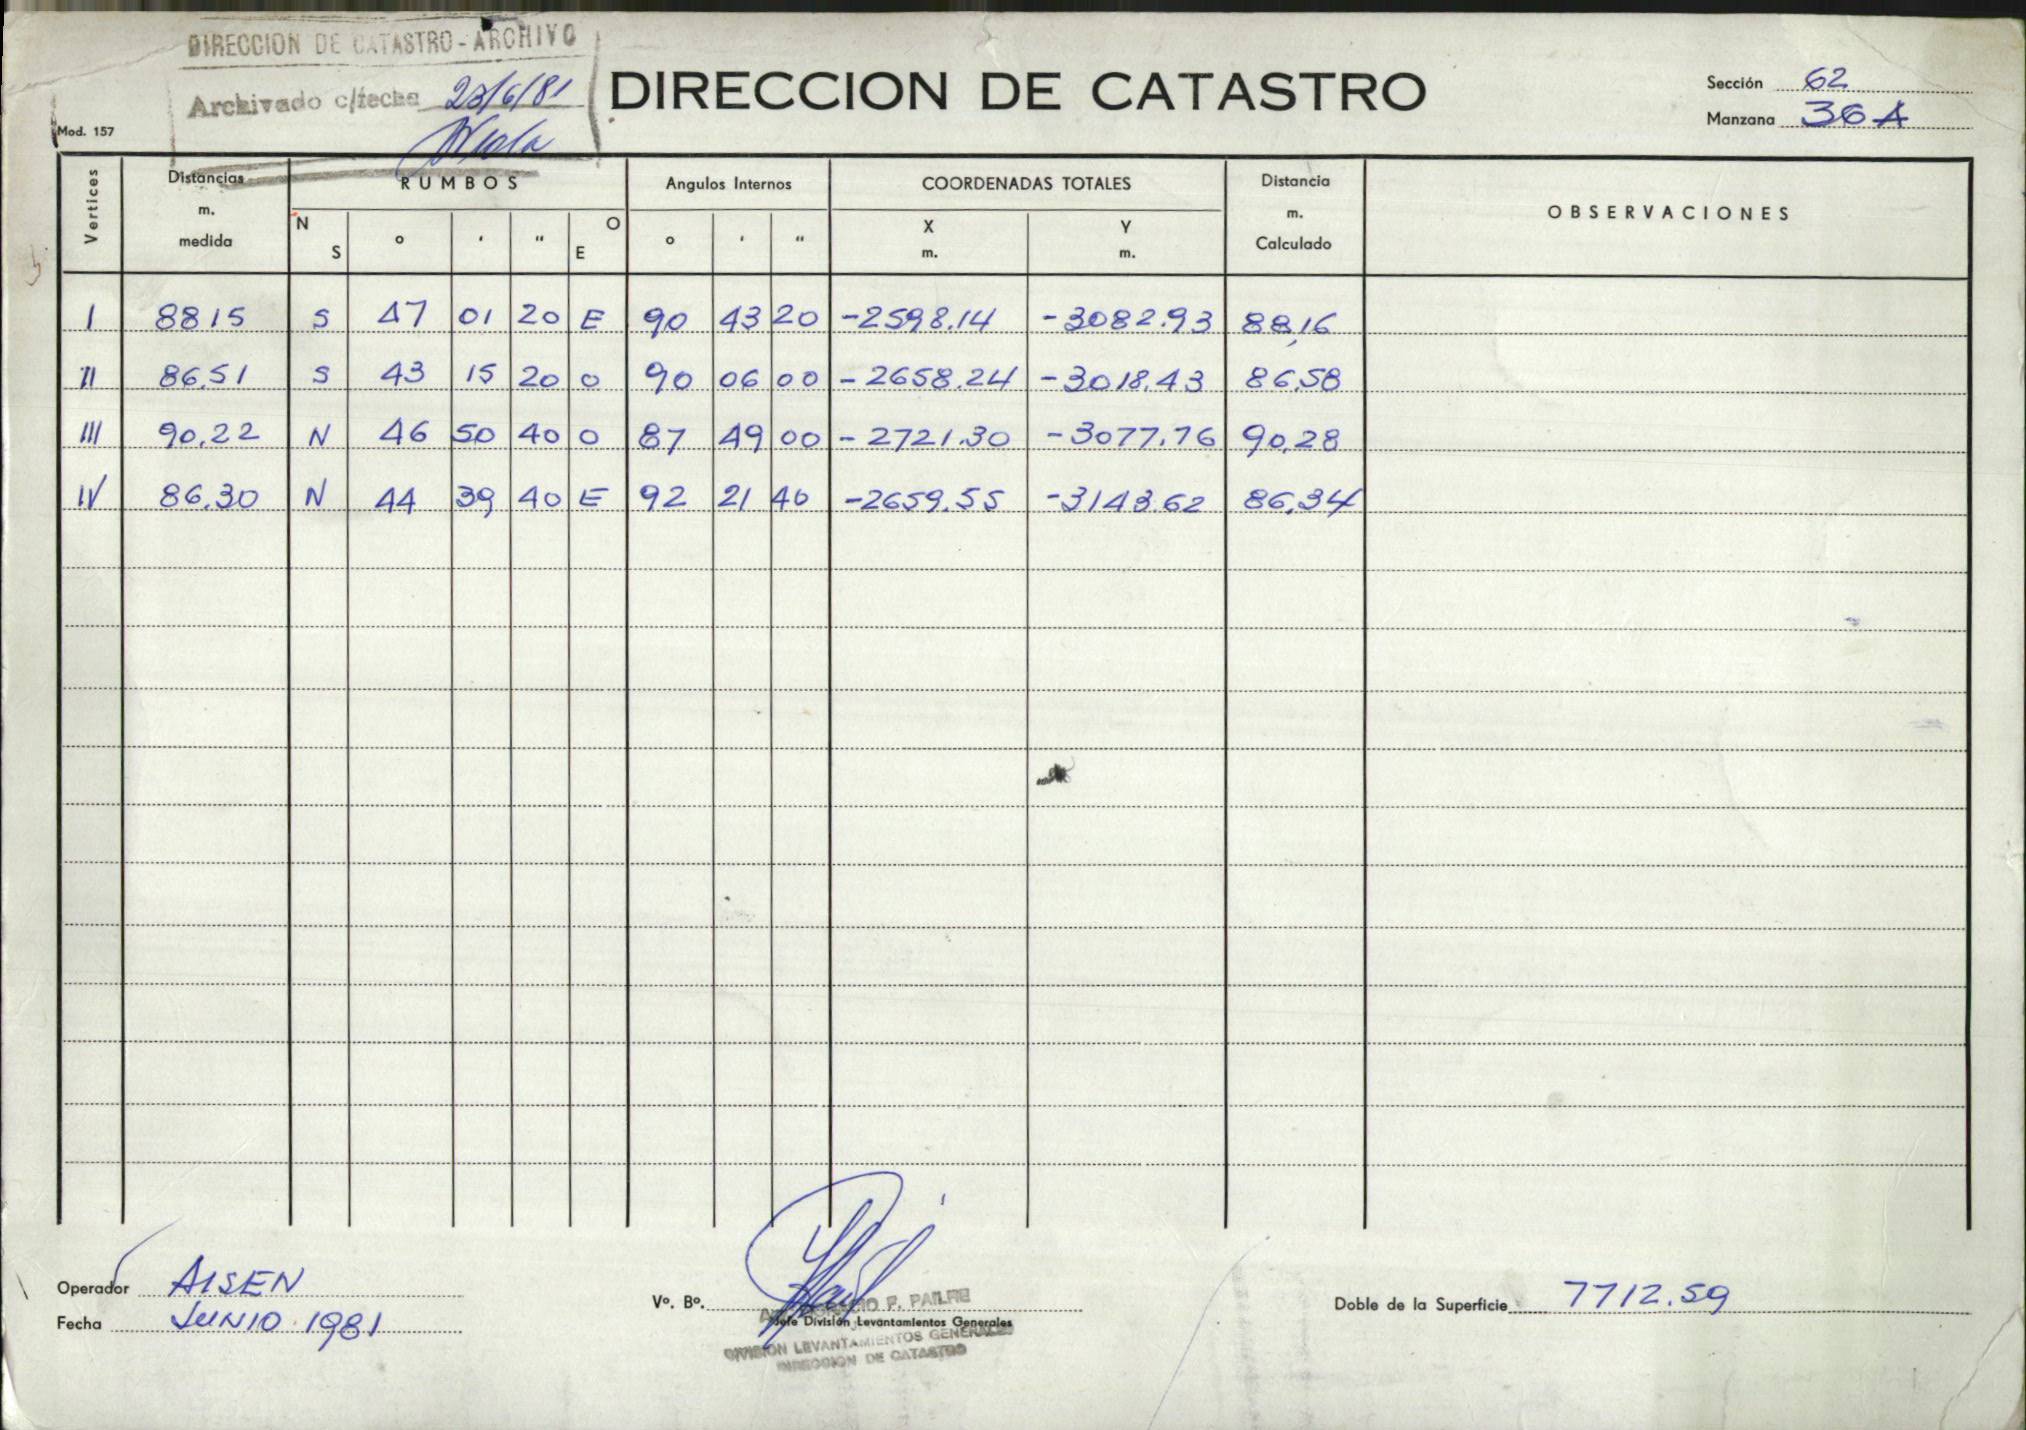 DIRECCION DE CATASTRO - ARCHIVO
Archivado c/fecha 23/6/81
DIRECCION DE CATASTRO
Sección 62
Manzana 36 A
Mod. 157
Vertices Distancias m. medida RUMBOS N S o ' " O E Angulos Internos o ' " COORDENADAS TOTALES X m. Y m. Distancia m. Calculado OBSERVACIONES
I 88 15 S 47 01 20 E 90 43 20 -2598.14 -3082.93 88,16
II 86.51 S 43 15 20 O 90 06 00 -2658.24 -3018.43 86.58
III 90.22 N 46 50 40 O 87 49 00 -2721.30 -3077.76 90.28
IV 86.30 N 44 39 40 E 92 21 40 -2659.55 -3143.62 86.34
Operador AISEN
Fecha JUNIO 1981
Vº. Bº.
F. PAILRE
Jefe División Levantamientos Generales
DIVISION LEVANTAMIENTOS GENERALES
DIRECCION DE CATASTRO
Doble de la Superficie 7712.59